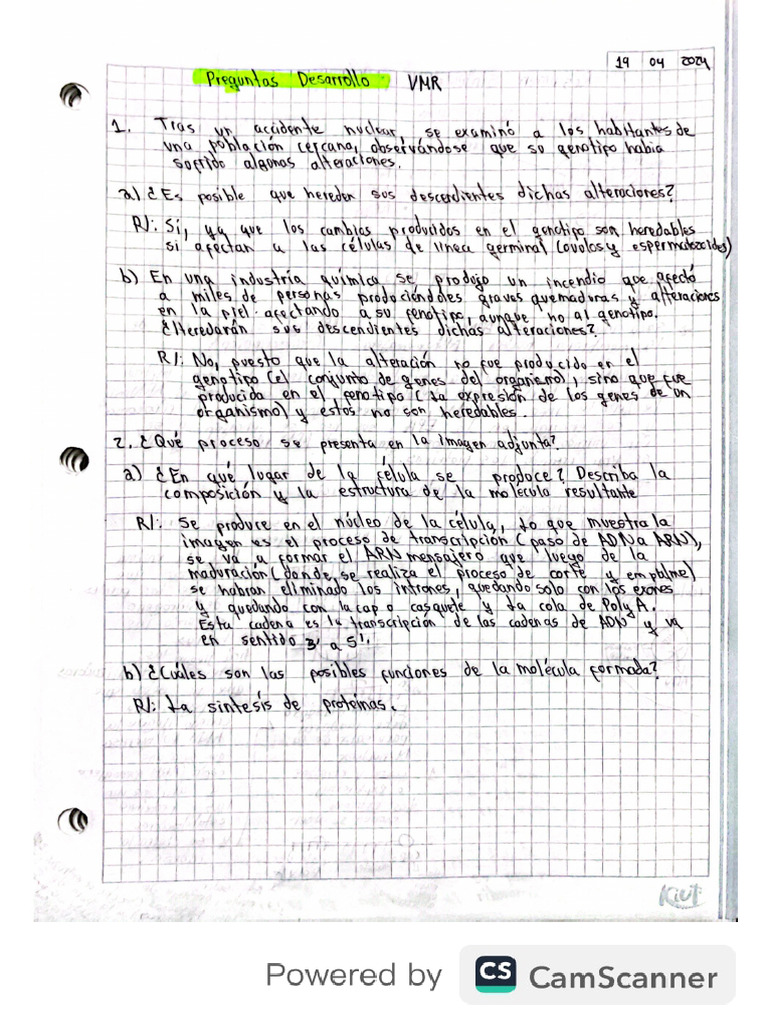 19 04 2024
Preguntas Desarrollo VMR
1. Tras un accidente nuclear, se examinó a los habitantes de
una población cercana, observándose que su genotipo había
sufrido algunas alteraciones.
a) ¿Es posible que hereden sus descendientes dichas alteraciones?
R/: Sí, ya que los cambios producidos en el genotipo son heredables
si afectan a las células de línea germinal (óvulos y espermatozoides)
b) En una industria química se produjo un incendio que afectó
a miles de personas produciéndoles graves quemaduras y alteraciones
en la piel afectando a su fenotipo, aunque no al genotipo.
¿Heredarán sus descendientes dichas alteraciones?
R/: No, puesto que la alteración no fue producido en el
genotipo (el conjunto de genes del organismo), sino que fue
producida en el fenotipo (La expresión de los genes de un
organismo) y estos no son heredables.
2. ¿Qué proceso se presenta en la imagen adjunta?
a) ¿En qué lugar de la célula se produce? Describa la
composición y la estructura de la molécula resultante
R/: Se produce en el núcleo de la célula, Lo que muestra la
imagen es el proceso de transcripción (paso de ADN a ARN),
se va a formar el ARN mensajero que luego de la
maduración (donde se realiza el proceso de corte y empalme)
se habran eliminado los intrones, quedando solo con los exones
y quedando con la cap o casquete y La cola de Poly A.
Esta cadena es la transcripción de las cadenas de ADN y va
en sentido 3' a 5'.
b) ¿Cuáles son las posibles funciones de la molécula formada?
R/: La síntesis de proteínas.
Kiut
Powered by CS CamScanner